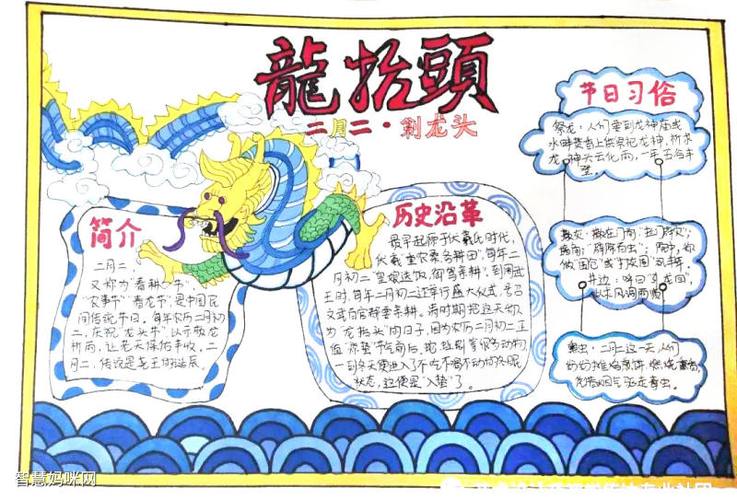 龍抬頭
二月二·剃龙头
简介
二月二，
又称为"春耕节"、
"农事节""春龙节"，是中国民
间传统节日。每年农历二月初
二，庆祝"龙头节"，以示敬龙
祈雨，让老天保佑丰收。二
月二，传说是龙王的诞辰。
历史沿革
最早起源于伏羲氏时代，
伏羲"重农桑务耕田"，每年二
月初二"皇娘送饭，御驾亲耕"，到周武
王时，每年二月初二还举行盛大仪式，号召
文武百官都要亲耕。
为"龙抬头"的日子，因为农历二月初二正
值"惊蛰"节气前后，
一到冬天便进入了不吃不喝不动的冬眠
状态，这便是"入蛰"了。
节日习俗
祭龙：人们要到龙神庙或
水畔焚香上供祭祀龙神，祈求
龙神兴云化雨，一年五谷丰
登。
撒灰：撒在门前"拦门辟灾"；
井边：
以求风调雨顺
熏虫：二月二这一天，人们
智慧妈咪网